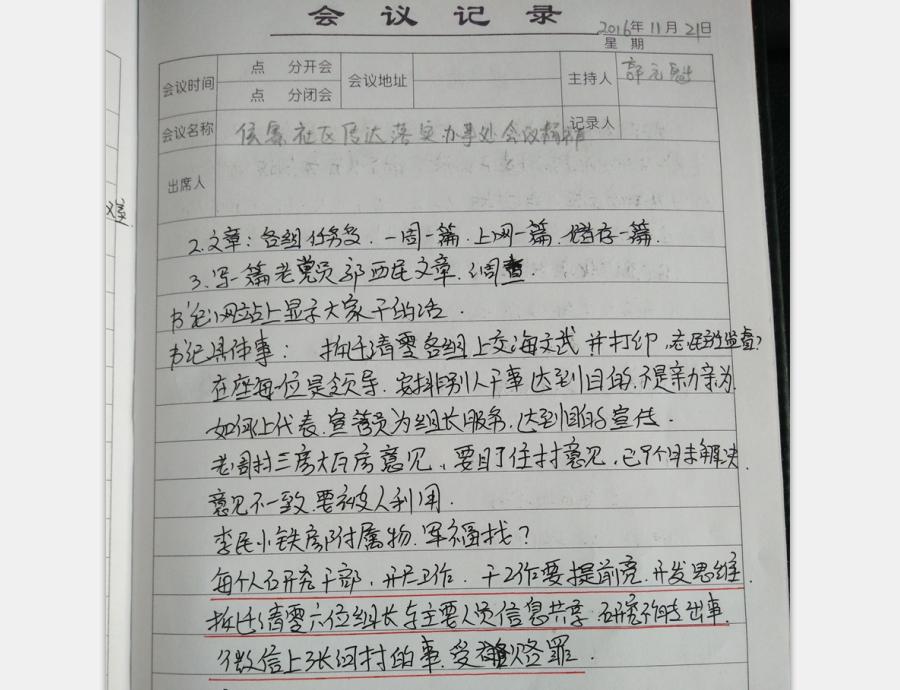 会议记录
2016年11月21日
星 期
会议时间 点 分开会 会议地址 主持人
点 分闭会
会议名称 社区传达落实办事处会议精神 记录人
出席人
2.文章:各组任务多.一周一篇.上网一篇.储存一篇.
3.写一篇老党员郭西民文章.调查
书记:网站上显示大家干的活.
书记具体事: 拆迁清零各组上交海文武并打印.
在座每一位是领导.安排别人干事达到目的.不是亲力亲为
如何让代表.宣传员为组长服务.达到目的宣传.
老周村三房大瓦房意见.要自了住村意见,已9个月未解决.
意见不一致.要被人利用.
李民小铁房附属物.军福找?
每个人召开党干部,开展工作.干工作要提前亮.开发思维.
拆迁清零六位组长与主要人员信息共享.研究不能出事.
微信上张河村的事.受 罪.